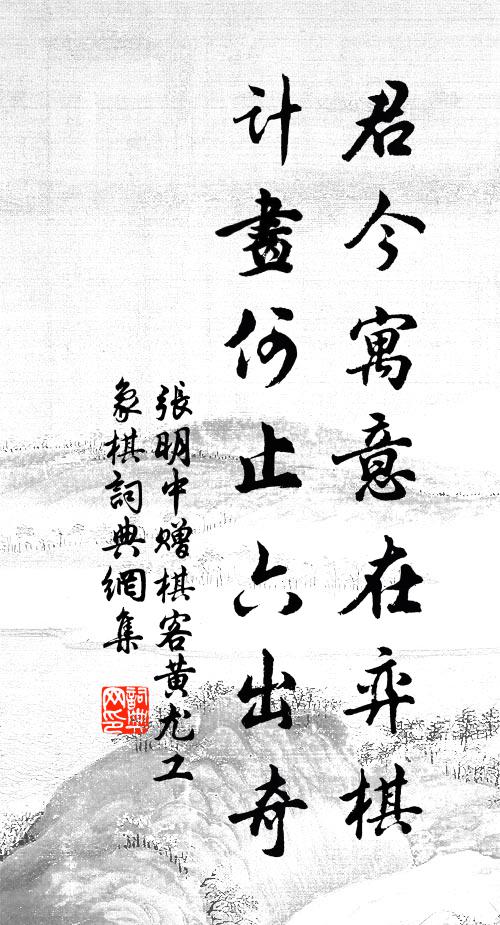 君今寓意在弈棋
计畫何止六出奇
張明中赠棋客黄尤工
象棋詞典網集
詞典
网印